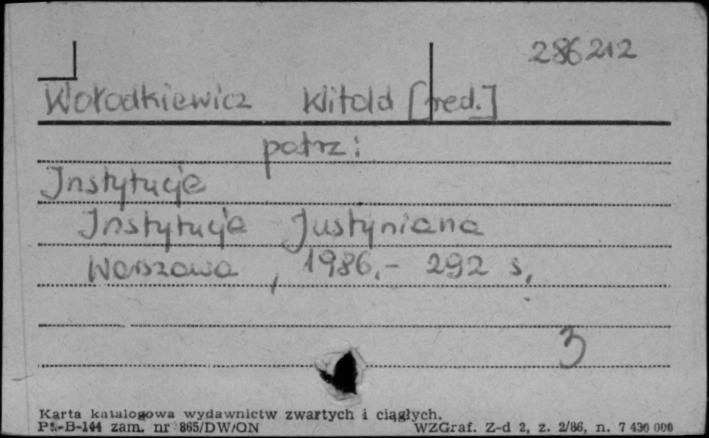 286212
Wołodkiewicz Witold [red.]
patrz:
Instytucje
Instytucje Justyniana
Warszawa, 1986.- 292 s.
3
Karta katalogowa wydawnictw zwartych i ciągłych.
Pu-B-144 zam. nr 865/DW/ON WZGraf. Z-d 2, z. 2/86, n. 7 430 000